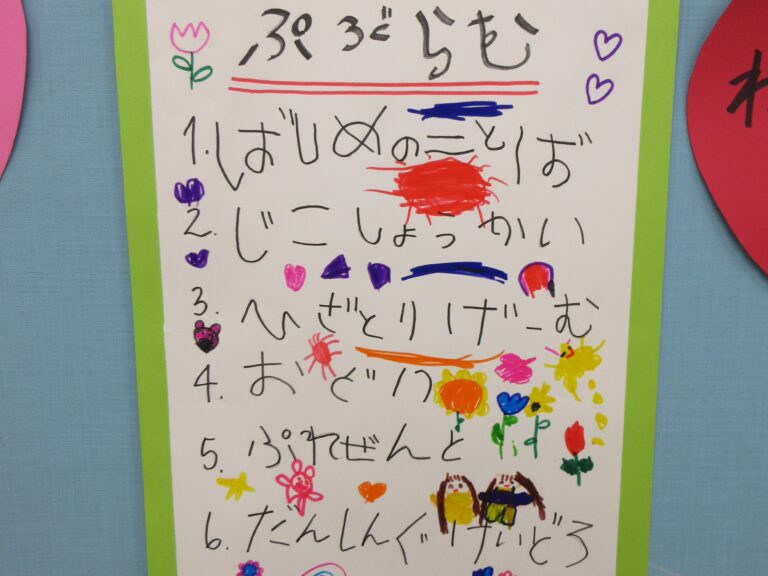 ぷろぐらむ
1.はじめのことば
2.じこしょうかい
3.ひざとりげーむ
4.おどり
5.ぷれぜんと
6.だんしんぐけいどろ
わ